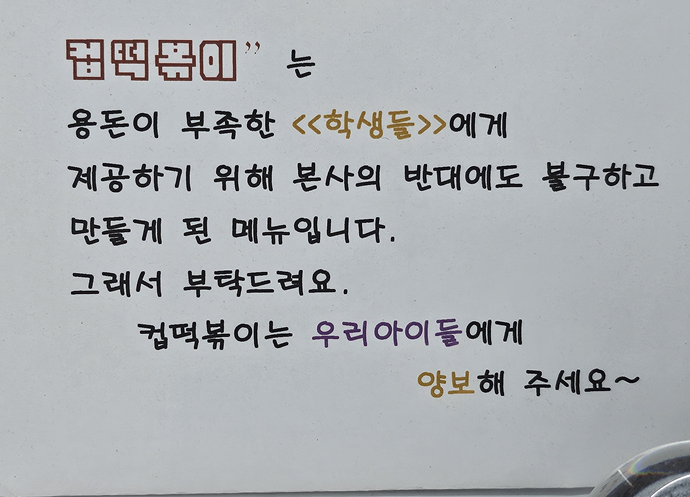 컵떡볶이" 는
용돈이 부족한 <<학생들>>에게
제공하기 위해 본사의 반대에도 불구하고
만들게 된 메뉴입니다.
그래서 부탁드려요.
컵떡볶이는 우리아이들에게
양보해 주세요~